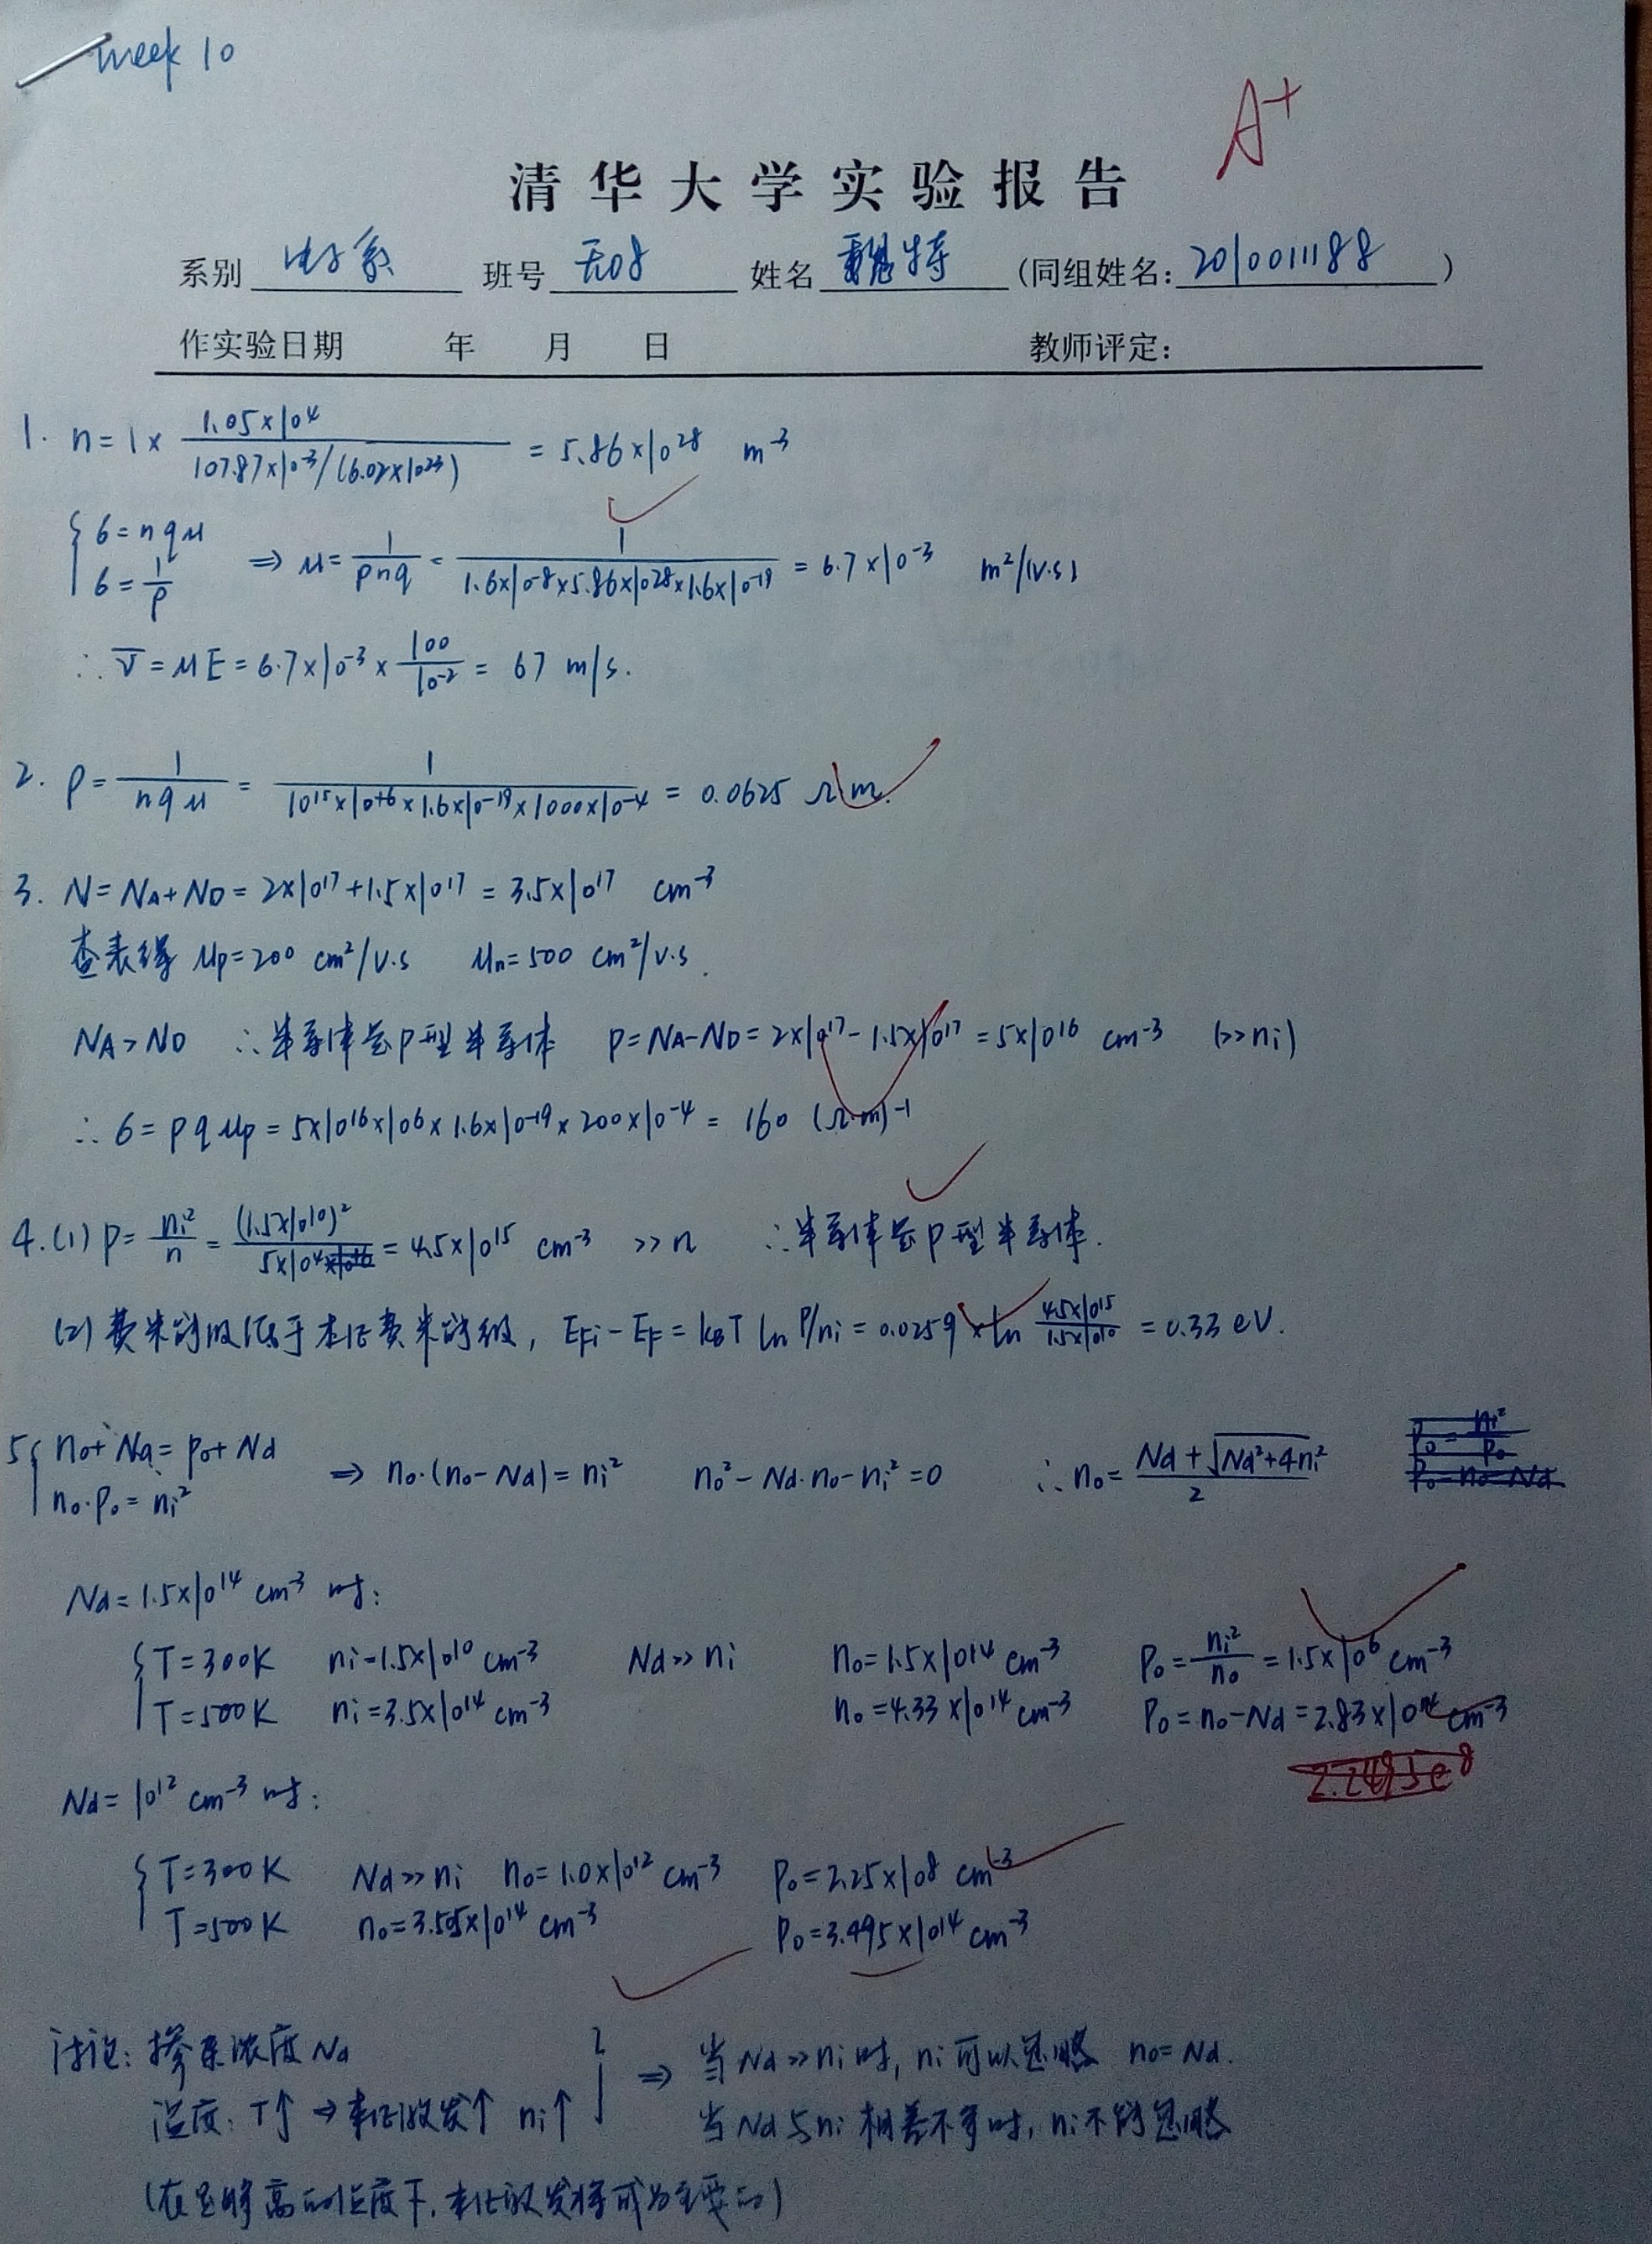 week 10
A+
清华大学实验报告
系别 电子系 班号 无08 姓名 魏特 (同组姓名: 2010011188 )
作实验日期 年 月 日 教师评定:
1. n = 1 × (1.05×10^4)/(107.87×10^-3/(6.02×10^23)) = 5.86×10^28 m^-3
{ σ = nqμ
σ = 1/ρ ⇒ μ = 1/(ρnq) = 1/(1.6×10^-8×5.86×10^28×1.6×10^-19) = 6.7×10^-3 m²/(V·s)
∴ v̅ = μE = 6.7×10^-3 × 100/10^-2 = 67 m/s.
2. ρ = 1/(nqμ) = 1/(10^15×10^+6×1.6×10^-19×1000×10^-4) = 0.0625 Ω·m.
3. N = NA+ND = 2×10^17+1.5×10^17 = 3.5×10^17 cm^-3
查表得 μp=200 cm²/V·s μn=500 cm²/V·s.
NA>ND ∴半导体是p型半导体 p=NA-ND=2×10^17-1.5×10^17=5×10^16 cm^-3 (>>ni)
∴ σ = pqμp = 5×10^16×10^6×1.6×10^-19×200×10^-4 = 160 (Ω·m)^-1
4. (1) p = ni²/n = (1.5×10^10)²/(5×10^4) = 4.5×10^15 cm^-3 >> n ∴半导体是p型半导体.
(2) 费米能级低于本征费米能级, EFi-EF = kBT ln p/ni = 0.0259 × ln (4.5×10^15)/(1.5×10^10) = 0.33 eV.
5. { n0+Na = p0+Nd
n0·p0 = ni² ⇒ n0·(n0-Nd) = ni² n0²-Nd·n0-ni²=0 ∴ n0 = (Nd+√(Nd²+4ni²))/2
p0 = ni²/p0
p0 = n0-Nd
Nd = 1.5×10^14 cm^-3 时:
{ T=300K ni=1.5×10^10 cm^-3 Nd>>ni n0=1.5×10^14 cm^-3 p0 = ni²/n0 = 1.5×10^6 cm^-3
T=500K ni=3.5×10^14 cm^-3 n0=4.33×10^14 cm^-3 p0=n0-Nd=2.83×10^14 cm^-3
2.2495e8
Nd = 10^12 cm^-3 时:
{ T=300K Nd>>ni n0=1.0×10^12 cm^-3 p0=2.25×10^8 cm^-3
T=500K n0=3.505×10^14 cm^-3 p0=3.495×10^14 cm^-3
讨论: 掺杂浓度 Nd
温度: T↑ → 本征激发↑ ni↑ } ⇒ 当Nd>>ni时, ni可以忽略 n0=Nd.
当Nd与ni相差不多时, ni不能忽略
(在足够高的温度下, 本征激发将成为主要的)